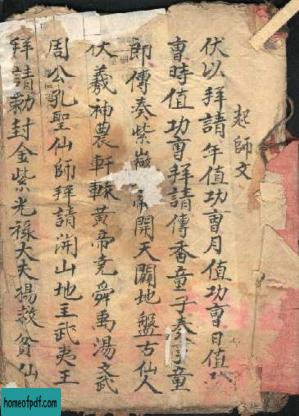 起師文
伏以拜請年值功曹月值功曹日值功
曹時值功曹拜請傳香童子奏事童
即傳奏紫嶽 帝開天闢地盤古仙人
伏羲神農軒轅黃帝堯舜禹湯文武
周公孔聖仙師拜請開山地主武夷王
拜請勅封金紫光祿大夫楊救貧仙
homeofpdf.com